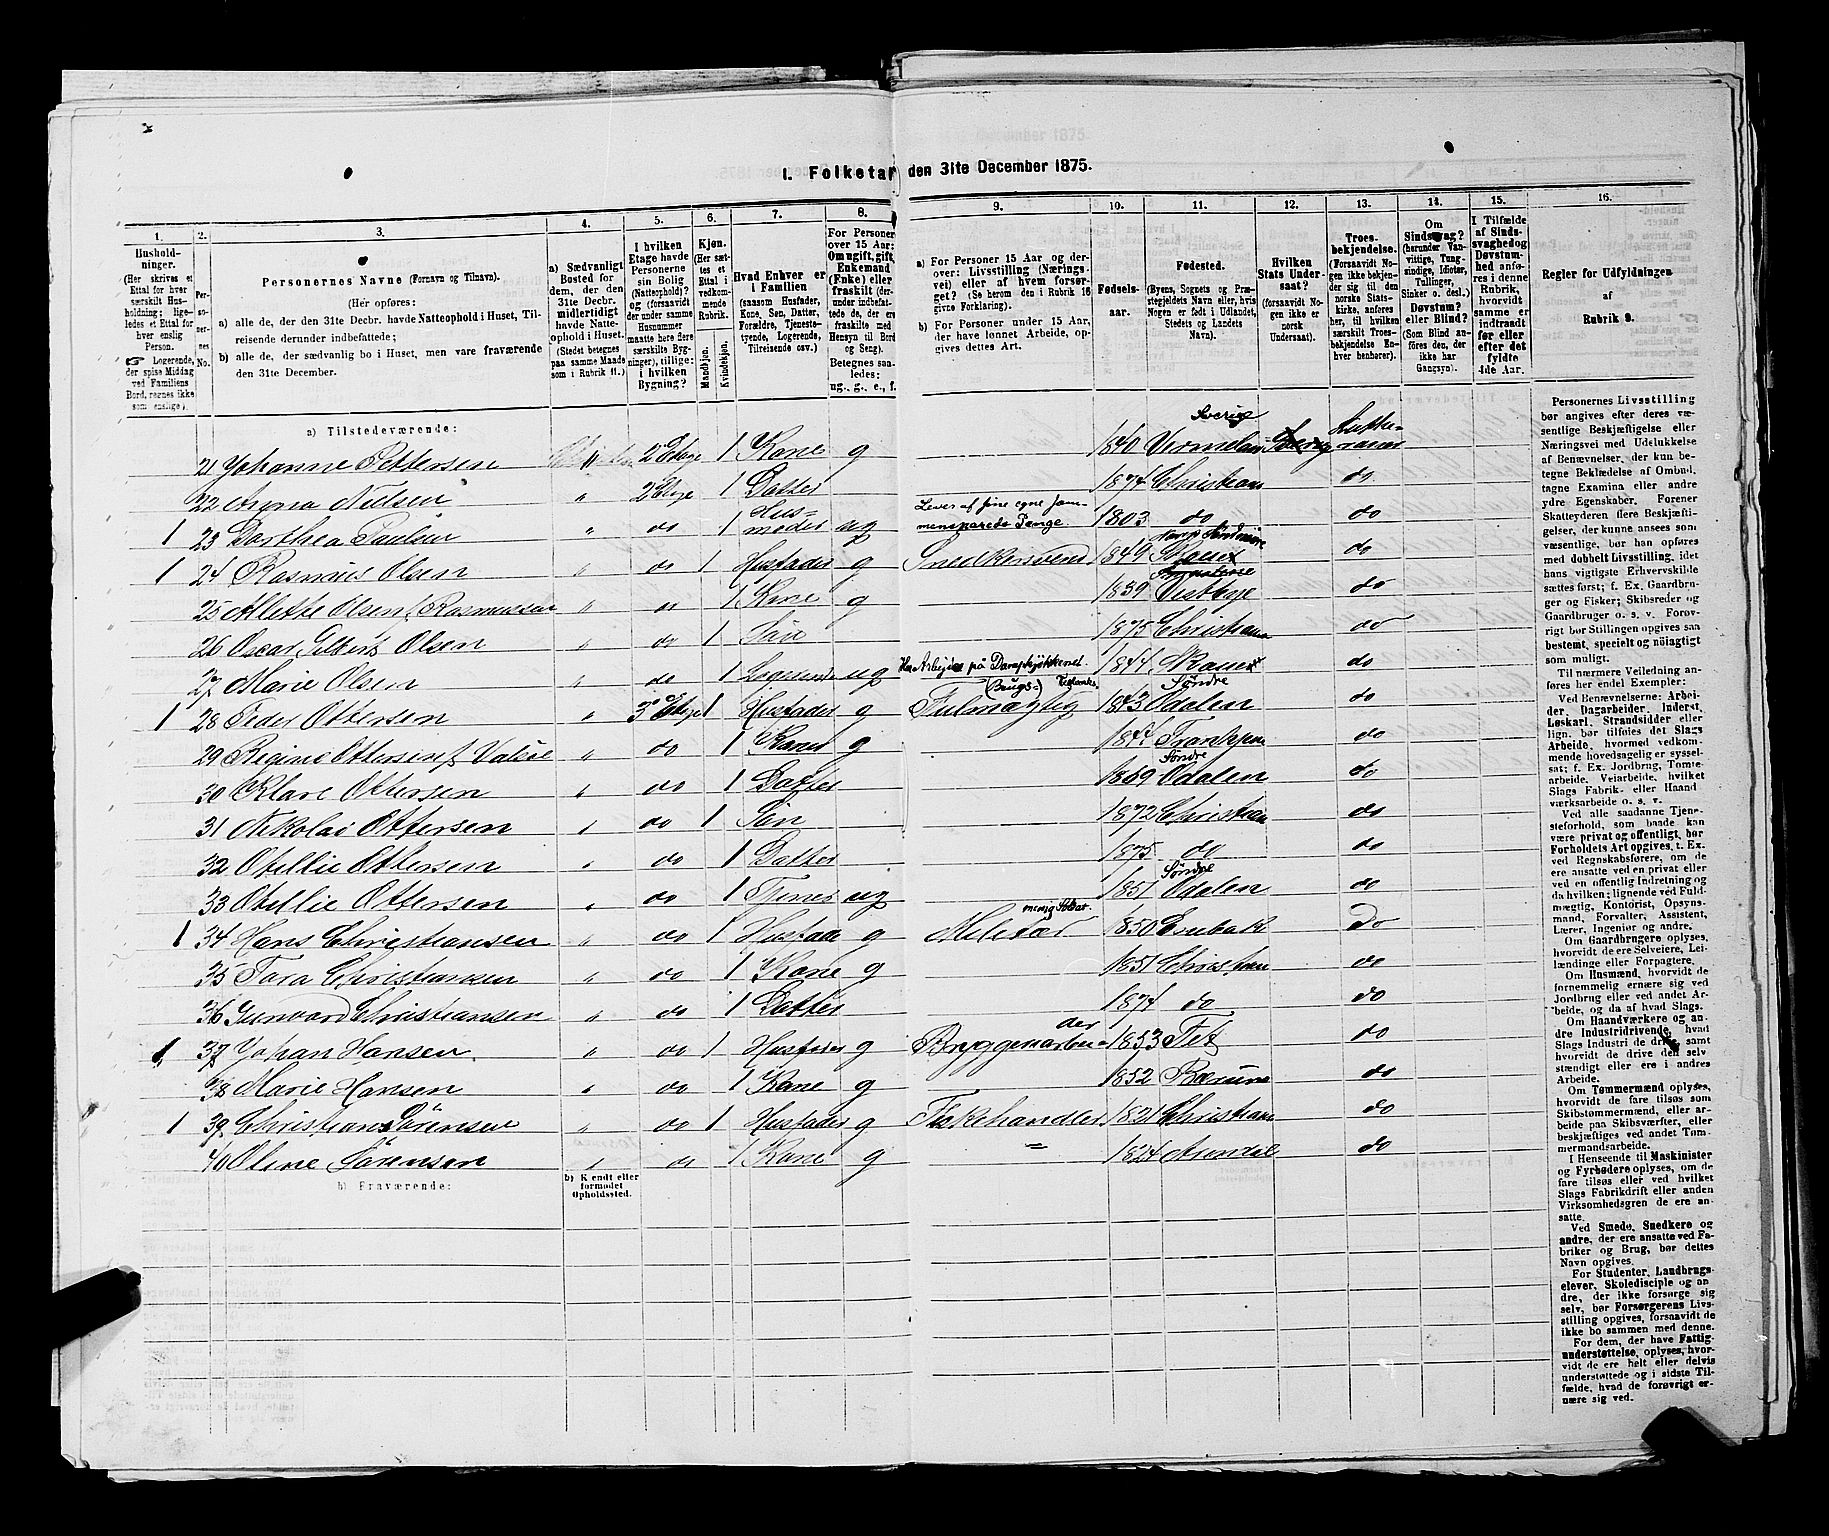 1. Folketal den 31te December 1875.
1. 2. 3. 4. 5. 6. 7. 8. 9. 10. 11. 12. 13. 14. 15. 16.
Hushold-
ninger.
(Her skrives et
Ettal for hver
særskilt Hus-
holdning; lige-
ledes et Ettal for
hver enslig
Person.
Logerende,
der spise Middag
ved Familiens
Bord, regnes ikke
som enslige).
Per-
so-
ner-
nes
No.
Personernes Navne (Fornavn og Tilnavn).
(Her opføres:
a) alle de, der den 31te Decbr. havde Natteophold i Huset, Til-
reisende derunder indbefattede;
b) alle de, der sædvanlig bo i Huset, men vare fraværende
den 31te December.
a) Sædvanligt
Bosted for
dem, der den
31te Decbr.
midlertidigt
havde Natte-
ophold i Huset.
(Stedet betegnes
paa samme Maade
som i Rubrik 11.)
I hvilken
Etage havde
Personerne
sin Bolig
(Natteophold)?
og (forsaavidt
der under samme
Husnummer
maatte høre flere
særskilte Byg-
ninger), tillige:
i hvilken
Bygning?
Kjøn.
(Her sæt-
tes et
Ettal i
vedkom-
mende
Rubrik.
Mandkjøn.
Kvindekjøn.
Hvad Enhver er
i Familien
(saasom Husfader,
Kone, Søn, Datter,
Forældre, Tjeneste-
tyende, Logerende,
Tilreisende osv.)
For Personer
over 15 Aar:
Om ugift, gift,
Enkemand
(Enke) eller
fraskilt (der-
under indbefat-
tede de, der ere
fraskilte med
Hensyn til Bord
og Seng).
Betegnes saa-
ledes:
ug., g., e., f.
a) For Personer 15 Aar og der-
over: Livsstilling (Nærings-
vei) eller af hvem forsør-
get? (Se herom den i Rubrik 16
givne Forklaring).
b) For Personer under 15 Aar,
der have lønnet Arbeide, op-
gives dettes Art.
Fødsels-
aar.
Fødested.
(Byens, Sognets og Præ-
stegjeldets Navn eller, hvis
Nogen er født i Udlandet,
Stedets og Landets
Navn).
Hvilken
Stats Under-
saat?
(forsaavidt No-
gen ikke er
norsk
Undersaat).
Troes-
bekjendelse.
(Forsaavidt No-
gen ikke bekjen-
der sig til den
norske Stats-
kirke, anføres
her, til hvilken
særskilt Troes-
bekjendelse En-
hver henhører).
Om
Sindssvag?
(herunder Van-
vittige, Tung-
sindige, Idioter,
Tullinger,
Sinker o. desl.)
Døvstum?
eller Blind?
(Som Blind an-
føres den, der
ikke har
Gangsyn).
I Tilfælde
af Sinds-
svaghed og
Døvstum-
hed anfø-
res i denne
Rubrik,
hvorvidt
samme er
indtraadt
før eller
efter det
fyldte
4de Aar.
Regler for Udfyldningen
af
Rubrik 9.
a) Tilstedeværende:
21 Johanne Pettersen 2 Etage 1 Kone g 1840 Vermeland Sverige Luthe-
ranar
22 Anna Nielsen " 2 Etage 1 Datter 1874 Christiania do
1 23 Dorthea Paulsen " do 1 Hus-
moder ug Lever af sine egne sam-
mensparede Penge. 1803 do do
1 24 Rasmus Olsen " do 1 Husfader g Snedkersvend 1849 do
25 Alette Olsen f. Rasmussen " " 1 Kone g 1839 do
26 Oscar Olsen " do 1 Søn 1875 Christiania do
27 Marie Olsen " do 1 Logerende ug 1844 do
1 28 Peder Ottersen " 3 Etage 1 Husfader g Fulmægtig (Brugs-) 1843 Søndre Odalen do
29 Regine Ottersen f. " do 1 Kone g 1844 do
30 Klare Ottersen " do 1 Datter 1869 Søndre Odalen do
31 Nikolai Ottersen " do 1 Søn 1872 Christian do
32 Otillie Ottersen " do 1 Datter 1875 do do
33 Otillie Ottersen " do 1 Tjenes ug 1851 Søndre Odalen do
1 34 Hans Christiansen " do 1 Husfade g Militær menig Soldat 1850 Enebak do
35 Tara Christiansen " do 1 Kone g 1851 Christian do
36 Gunvard Christiansen " do 1 Datter 1874 do do
1 37 Johan Hansen " do 1 Husfader g Bryggeriarbei-
der 1853 Fet do
38 Marie Hansen " do 1 Kone g 1852 Bærum do
1 39 Christian Sørensen " do 1 Husfader g Fiskehandler 1821 Christiania do
40 Oline Sørensen " do 1 Kone g 1824 Arendal do
b) Fraværende:
b) Kjendt eller
formodet
Opholdssted.
Personernes Livsstilling
bør angives efter deres væ-
sentlige Beskjæftigelse eller
Næringsvei med Udelukkelse
af Benævnelser, der kun be-
tegne Beklædelse af Ombud,
tagne Examina eller andre
ydre Egenskaber. Forener
Skatteyderen flere Beskjæfti-
gelser, der kunne ansees som
væsentlige, bør han opføres
med dobbelt Livsstilling, idet
hans vigtigste Erhvervskilde
sættes først; f. Ex. Gaardbru-
ger og Fisker; Skibsreder og
Gaardbruger o. s. v. Forøv-
rigt bør Stillingen opgives saa
bestemt, specielt og nøiagtigt
som muligt.
Til nærmere Veiledning an-
føres her endel Exempler:
Ved Benævnelserne: Arbei-
der, Dagarbeider, Inderst,
Løskarl, Strandsidder eller
lign. bør tilføies det Slags
Arbeide, hvormed vedkom-
mende hovedsagelig er syssel-
sat; f. Ex. Jordbrug, Tomte-
arbeide, Veiarbeide, hvilket
Slags Fabrik- eller Haand
værksarbeide o. s. v.
Ved alle saadanne Tjene-
steforhold, som baade kan
være privat og offentligt, bør
Forholdets Art opgives, t. Ex.
ved Regnskabsførere, om de
ere ansatte ved en privat eller
ved en offentlig Indretning og
da hvilken; lignende ved Fuld-
mægtig, Kontorist, Opsyns-
mand, Forvalter, Assistent,
Lærer, Ingeniør og andre.
Om Gaardbrugere oplyses,
hvorvidt de ere Selveiere, Lei-
lændinge eller Forpagtere.
Om Husmænd, hvorvidt de
fornemmelig ernære sig ved
Jordbrug eller ved andet Ar-
beide, og da af hvad Slags.
Om Haandværkere og an-
dre Industridrivende, hvad
Slags Industri de drive, samt
hvorvidt de drive den selv
stændigt eller ere i andres
Arbeide.
Om Tømmermænd oplyses,
hvorvidt de fare tilsøs som
Skibstømmermænd, eller ar-
beide paa Skibsværfter, eller
beskjæftiges ved andet Tøm-
mermandsarbeide.
I Henseende til Maskinister
og Fyrbødere oplyses, om de
fare tilsøs eller ved hvilket
Slags Fabrikdrift eller anden
Virksomhedsgren de ere an-
satte.
Ved Smede, Snedkere og
andre, der ere ansatte ved Fa-
briker og Brug, bør dettes
Navn opgives.
For Studenter, Landbrugs-
elever, Skoledisciple og an
dre, der ikke forsørge sig
selv, bør Forsørgerens Livs-
stilling opgives, forsaavidt de
ikke bo sammen med denne.
For dem, der have Fattig-
understøttelse, oplyses, hvor-
vidt de ere helt eller delvis
understøttede og i sidste Til-
fælde, hvad de forøvrigt er-
nære sig ved.